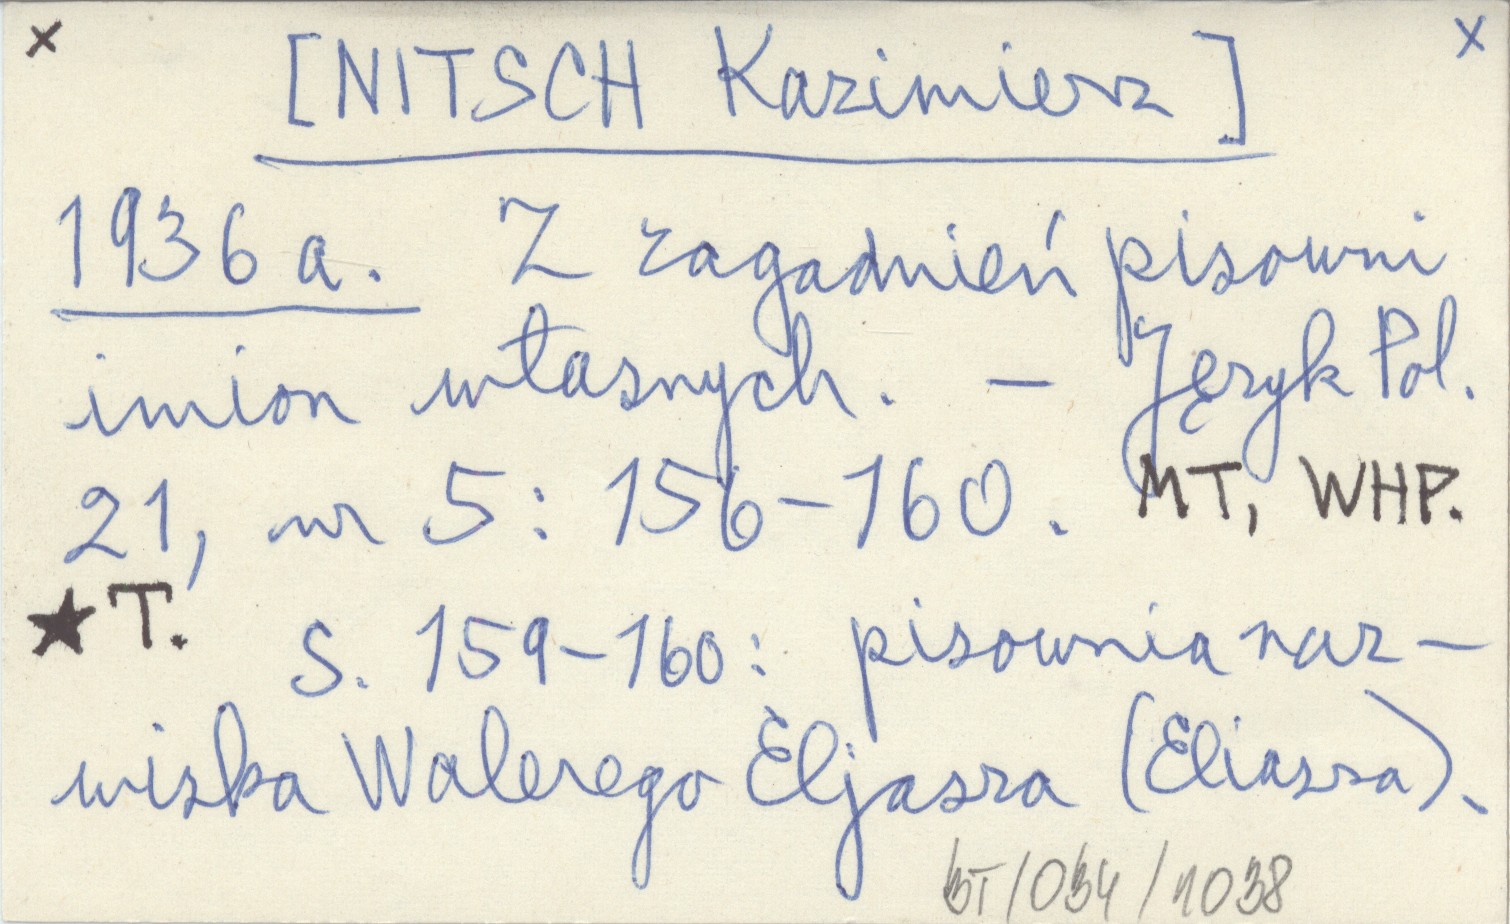 x x
[NITSCH Kazimierz]
1936a. Z zagadnień pisowni
imion własnych. – Język Pol.
21, nr 5: 156–160. MT, WHP.
★ T. S. 159–160: pisownia naz–
wiska Walerego Eljasza (Eliasza).
BT/034/1038